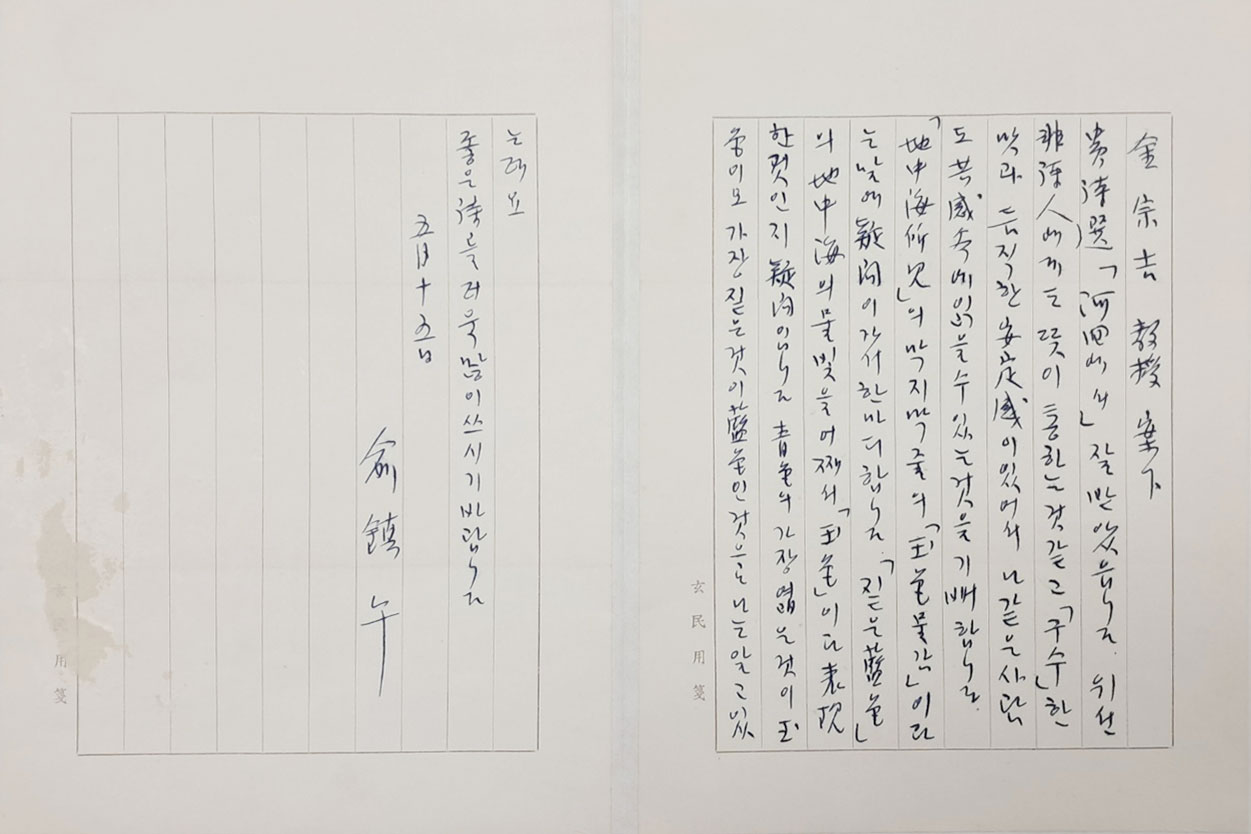 金宗吉 敎授 案下
貴詩選「河回에서」 잘 받았읍니다. 위선
非詩人에게도 뜻이 통하는것같고 「구수」한
맛과 듬직한 安定感이있어서 나같은사람
도 共感속에읽을수있는것을기뻐합니다.
「地中海所見」의 막지막줄의 「玉色물감」이라
는말에 疑問이가서한마디합니다. 「짙은藍色」
의 地中海의물빛을어째서 「玉色」이라表現
한것인지 疑問입니다 靑色의가장엷은것이玉
色이요 가장짙은것이藍色인것으로나는알고있
는데요
좋은詩를더욱많이쓰시기바랍니다
五月十五日
俞鎭午
玄民用箋
用箋